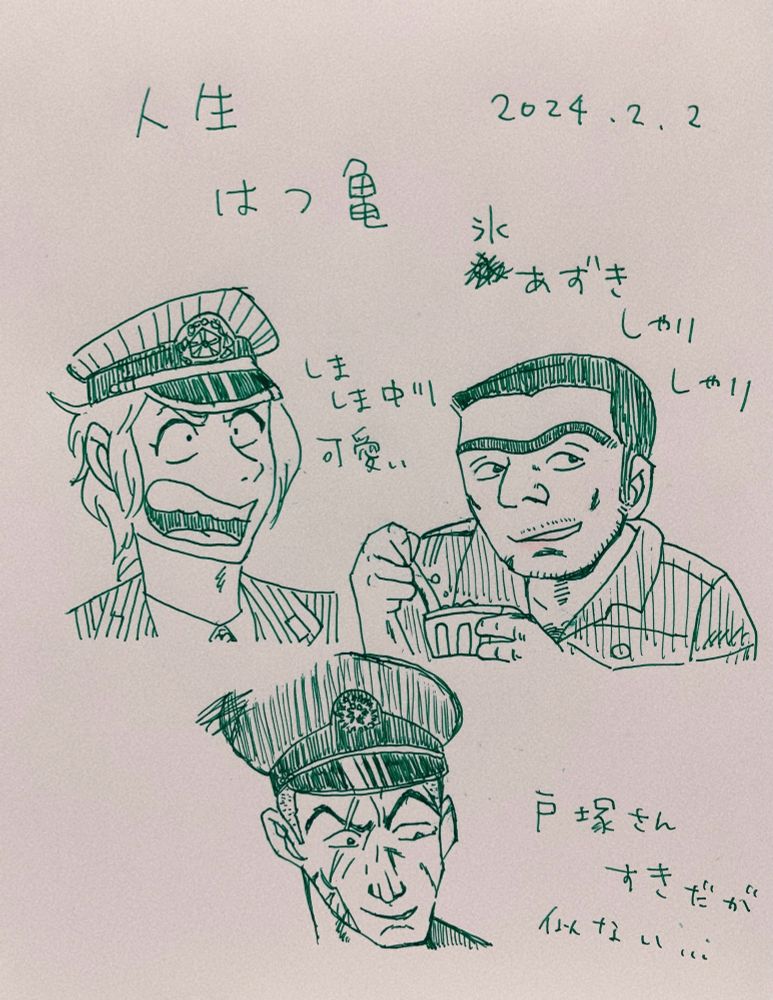 人生
はつ亀
2024.2.2
氷
あずき
しゃり
しゃり
しま
しま中川
可愛い
戸塚さん
すきだが
似ない...